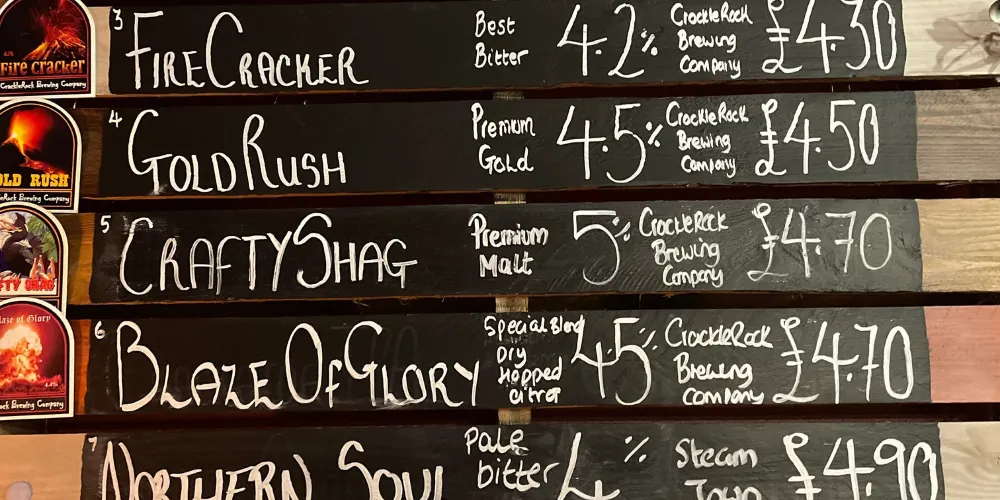 Fire Cracker
CrackleRock Brewing Company
3 FIRECRACKER Best Bitter 4.2% CrackleRock Brewing Company £4.30
OLD RUSH
Rock Brewing Company
4 GOLD RUSH Premium Gold 4.5% CrackleRock Brewing Company £4.50
FTY SHAG
5 CRAFTYSHAG Premium Malt 5% CrackleRock Brewing Company £4.70
laze of Glory
ock Brewing Company
6 BLAZE OF GLORY Special Blend Dry Hopped citra 4.5% CrackleRock Brewing Company £4.70
7 NORTHERN SOUL Pale bitter 4 % Steam Town £4.90